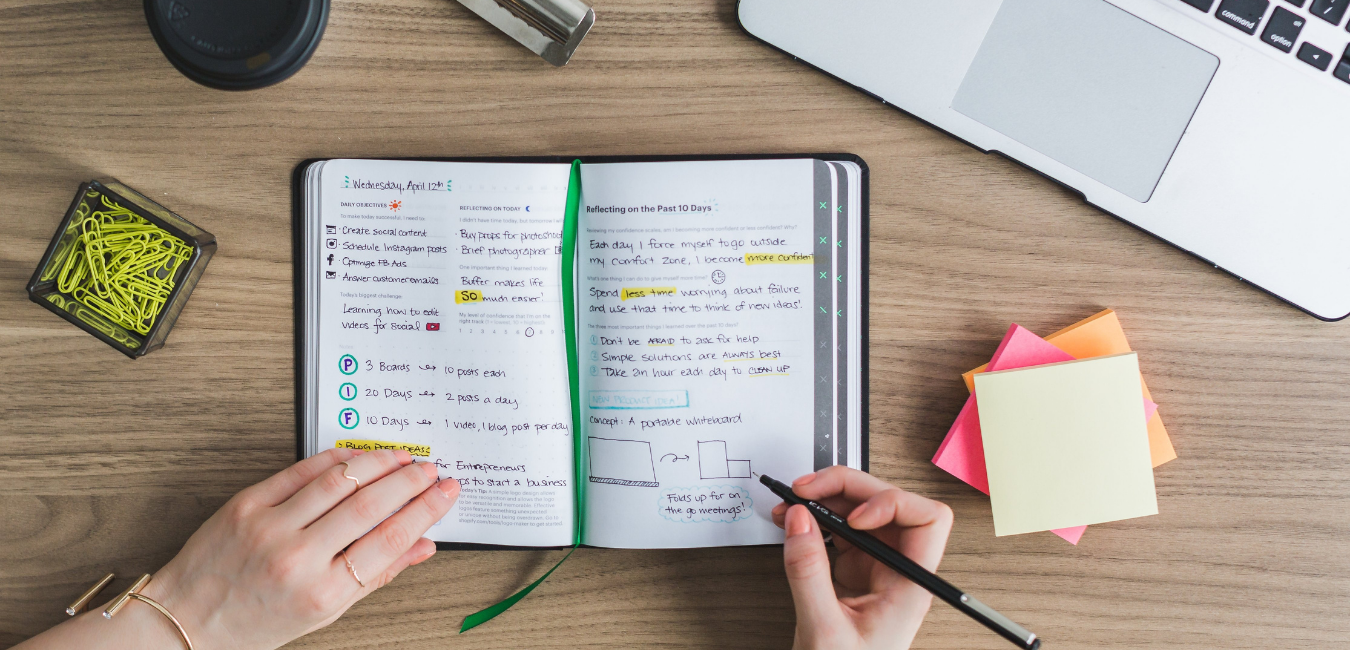 command
option
Wednesday, April 12th
DAILY OBJECTIVES
To make today successful, I need to:
Create social content
Schedule Instagram posts
Optimize FB Ads
Answer customer emails
Today's biggest challenge
Learning how to edit
videos for social
P 3 Boards → 10 posts each
I 20 Days → 2 posts a day
F 10 Days → 1 video, 1 blog post per day
> BLOG POST IDEAS:
for Entrepreneurs
to start a business
REFLECTING ON TODAY
I didn't have time today, but tomorrow I will
· Buy props for photoshoot
· Brief photographer
One important thing I learned today
Buffer makes life
SO much easier!
My level of confidence that I'm on the
right track
1 2 3 4 5 6
Reflecting on the Past 10 Days
Reviewing my confidence scores, am I becoming more confident or less confident? Why?
Each day I force myself to go outside
my comfort zone, I become more confident
What's one thing I can do to give myself more time?
Spend less time worrying about failure
and use that time to think of new ideas!
The three most important things I learned over the past 10 days?
1 Don't be AFRAID to ask for help
2 Simple solutions are ALWAYS best
3 Take an hour each day to CLEAN UP
NEW PRODUCT IDEA!
Concept: A portable whiteboard
Folds up for on
the go meetings!